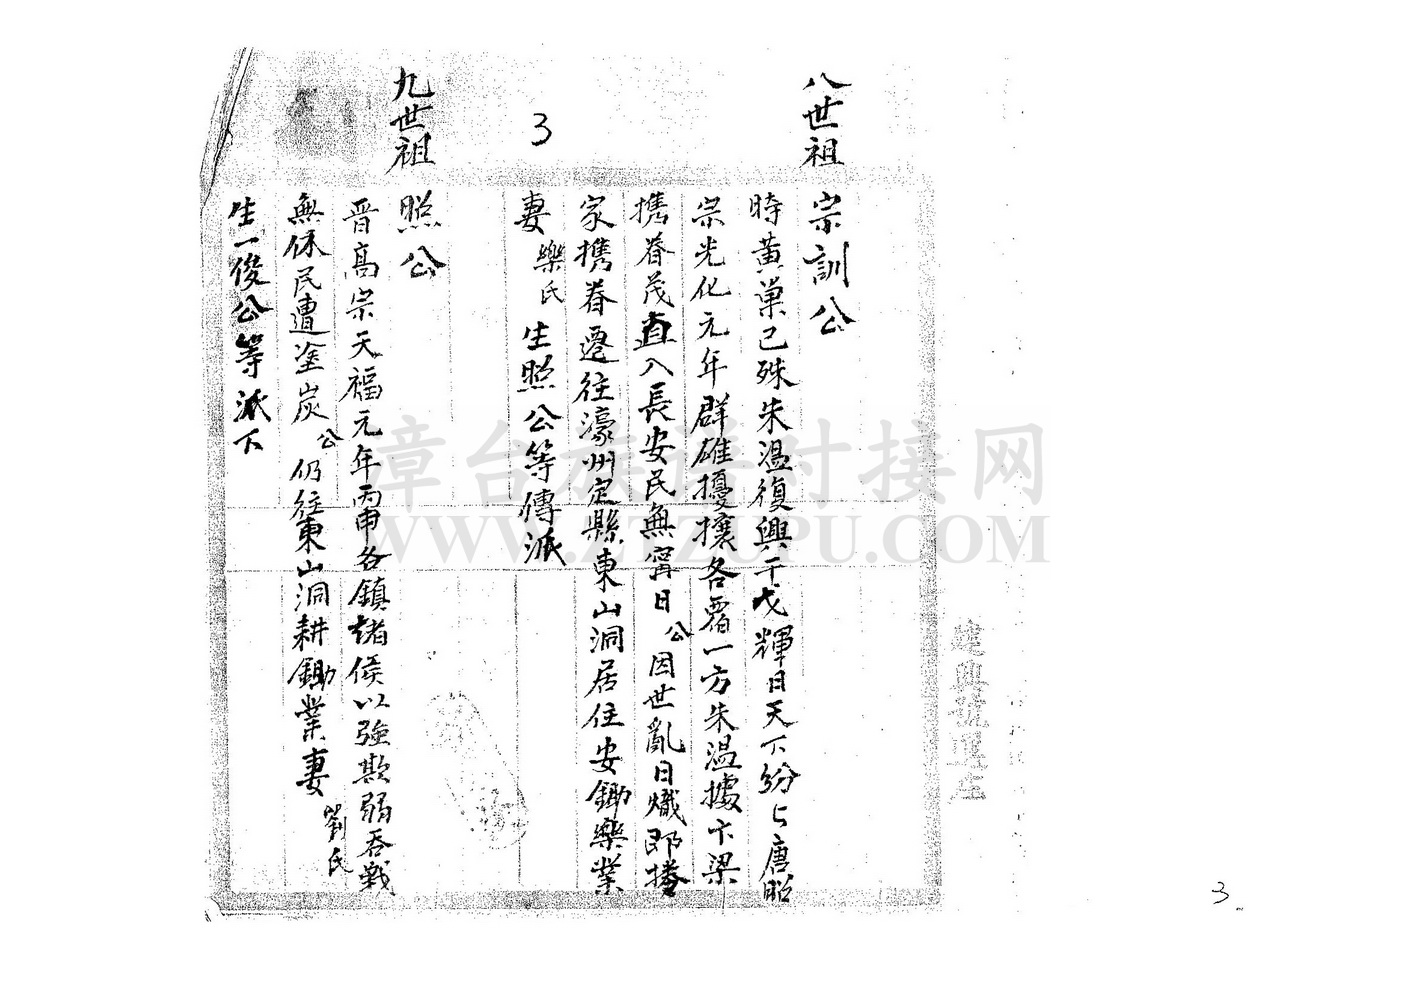 八世祖
宗訓公
時黃巢已殊朱温復興干戈輝日天下紛々唐昭
宗光化元年群雄擾攘各霸一方朱温據卞梁
携眷茂直入長安民無甯日公因世亂日熾即捲
家携眷遷往濠州定縣東山洞居住安鋤樂業
妻樂氏生照公等傳派
3
九世祖
照公
晋高宗天福元年丙申各鎮諸侯以強欺弱吞戰
無休民遭塗炭公仍往東山洞耕鋤業妻劉氏
生一俊公等派下
章台族谱对接网
WWW.ZTZUPU.COM
建興號
3